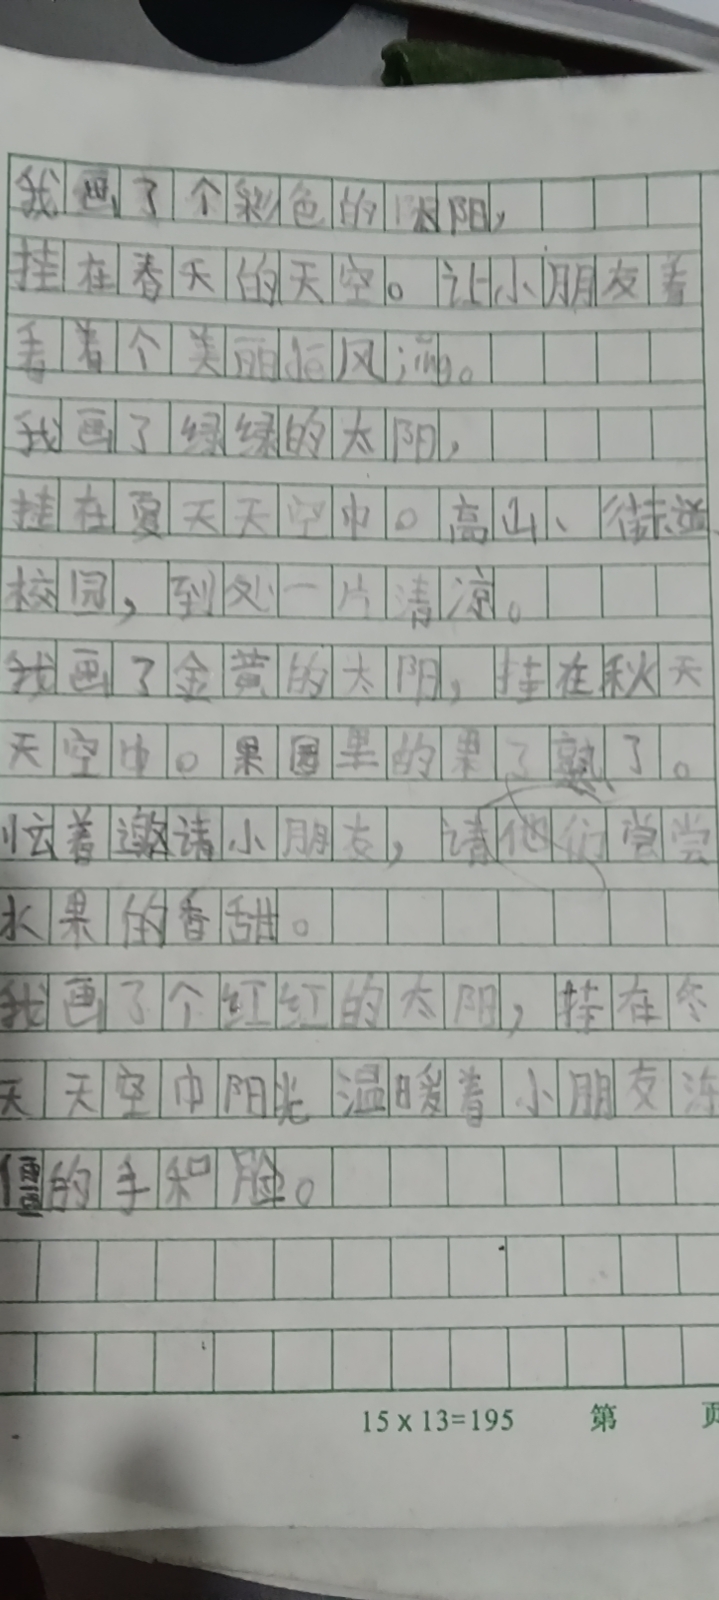 我画了个彩色的太阳，
挂在春天的天空。让小朋友着
看着个美丽de风jǐng。
我画了绿绿的太阳，
挂在夏天天空中。高山、街道
校园，到处一片清凉。
我画了金黄的太阳，挂在秋天
天空中。果园里的果了熟了。
忙着邀请小朋友，请他们尝尝
水果的香甜。
我画了个红红的太阳，挂在冬
天天空中阳光温暖着小朋友冻
僵的手和脸。
15 x 13=195 第 页